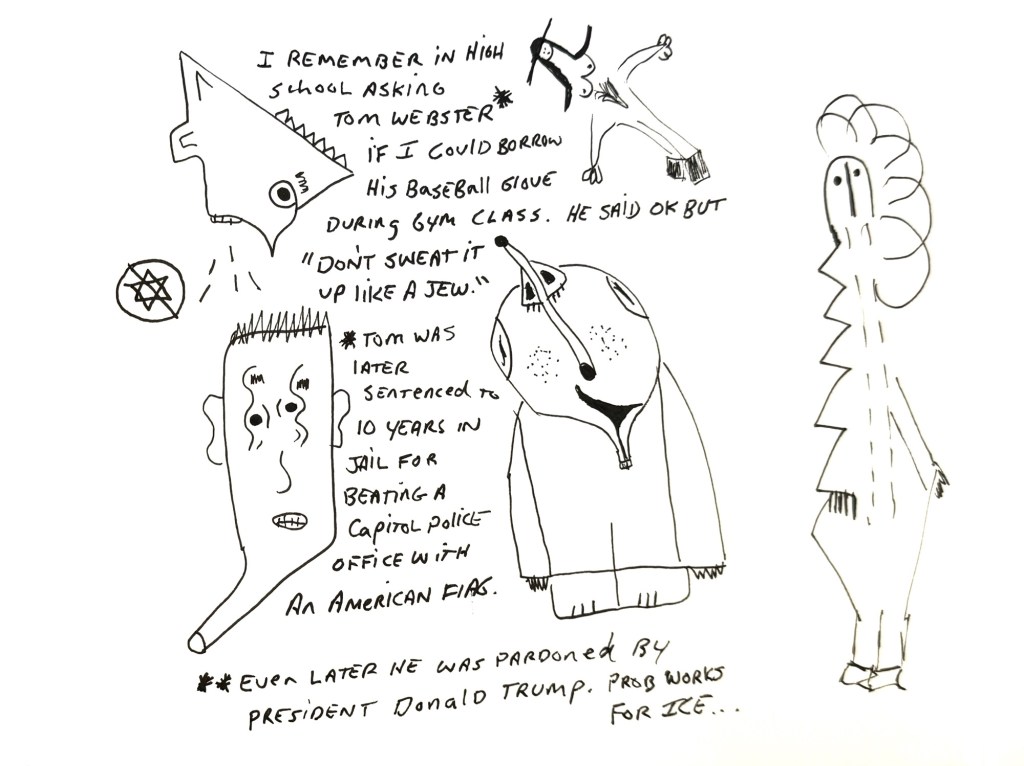 I REMEMBER IN HIGH
SCHOOL ASKING
TOM WEBSTER*
IF I COULD BORROW
HIS BASEBALL GLOVE
DURING GYM CLASS. HE SAID OK BUT
"DON'T SWEAT IT
UP LIKE A JEW."
*TOM WAS
LATER
SENTENCED TO
10 YEARS IN
JAIL FOR
BEATING A
CAPITOL POLICE
OFFICE WITH
AN AMERICAN FLAG.
**EVEN LATER HE WAS PARDONED BY
PRESIDENT DONALD TRUMP. PROB WORKS
FOR ICE...